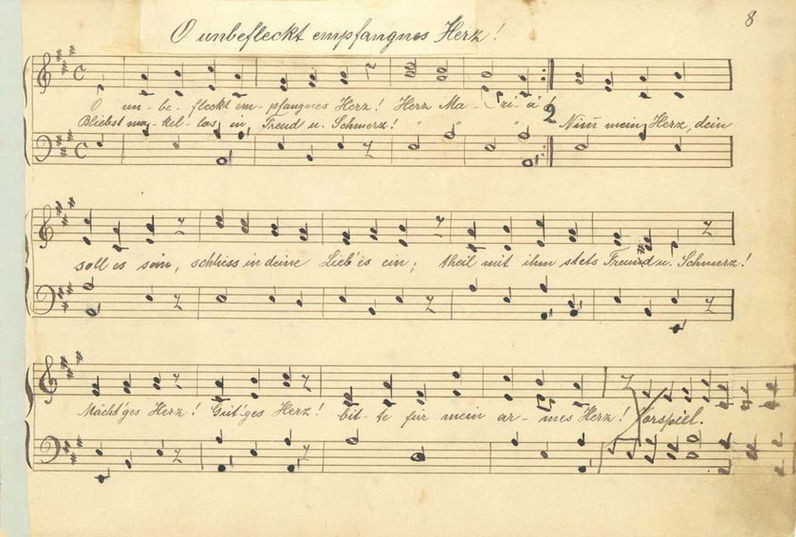 8
O unbefleckt empfangnes Herz!
O un-be-fleckt em-pfangnes Herz! Herz Ma-ri-ä!
Bliebst ma-kel-los in Freud u. Schmerz! " " " 2 Nim̄ mein Herz, dein
soll es sein, schliess in deine Lieb' es ein; theil mit ihm stets Freud u. Schmerz!
Mächt'ges Herz! Güt'ges Herz! bit-te für mein ar-mes Herz! Vorspiel.